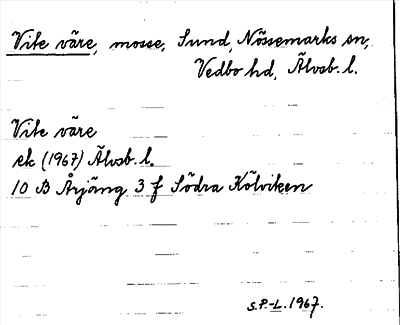 Vite väre, mosse, Sund, Nössemarks sn,
Vedbo hd, Älvsb. l.
Vite väre
ek (1967) Älvsb. l.
10 B Årjäng 3 f Södra Kölviken
S.P.-L. 1967.